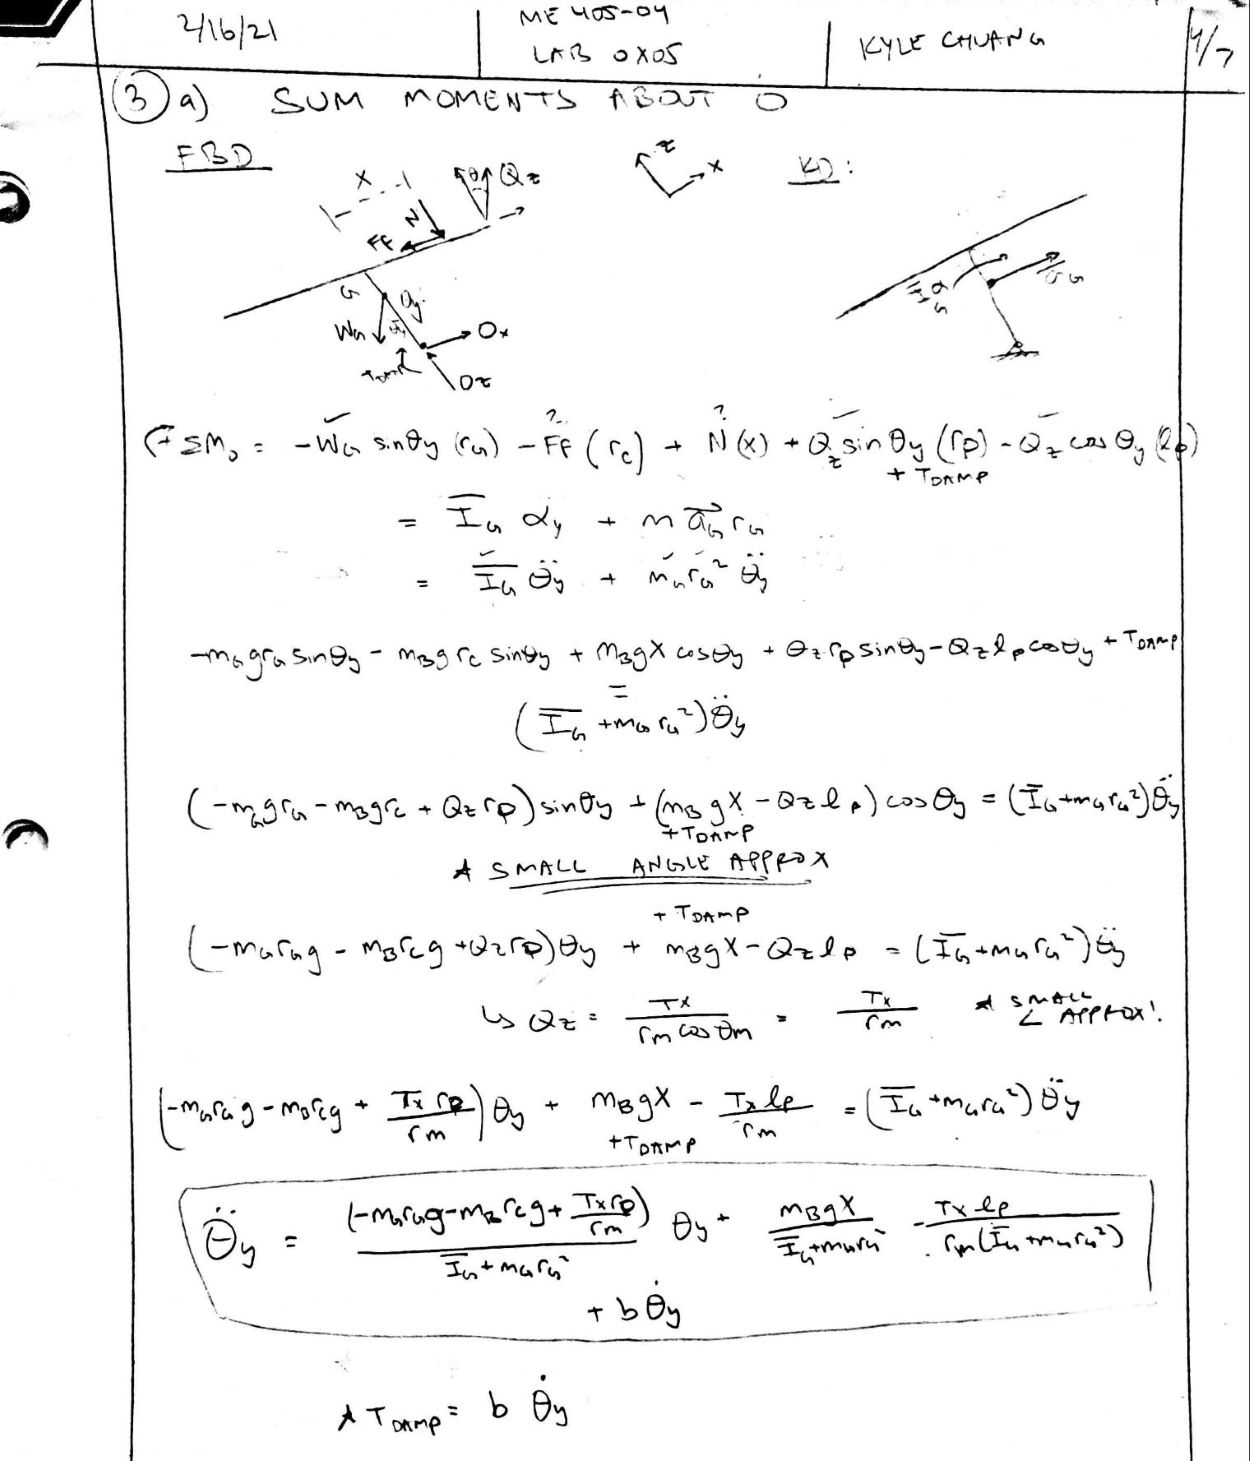 2/16/21
ME 405-04
LAB 0X05
KYLE CHUANG
4/7
3 a) SUM MOMENTS ABOUT O
FBD
KD:
z
x
X
θ
Qz
N
Ff
G
θy
WG
Ox
TDAMP
Oz
? ?
+ ΣMo = -WG sinθy (rG) - Ff (rc) + N(x) + Qz sin θy (rp) - Qz cos θy (lp)
+ TDAMP
= I̅G αy + m a̅G rG
= I̅G θ̈y + mG rG² θ̈y
-mG g rG sinθy - mB g rc sinθy + mB g X cosθy + Qz rp sinθy - Qz lp cosθy + TDAMP
=
(I̅G + mG rG²) θ̈y
(-mG g rG - mB g rc + Qz rp) sinθy + (mB g X - Qz lp) cos θy = (I̅G + mG rG²) θ̈y
+ TDAMP
* SMALL ANGLE APPROX
+ TDAMP
(-mG rG g - mB rc g + Qz rp) θy + mB g X - Qz lp = (I̅G + mG rG²) θ̈y
↳ Qz = Tx / (rm cos θm) = Tx / rm * SMALL ∠ APPROX!
(-mG rG g - mB rc g + Tx rp / rm) θy + mB g X - Tx lp / rm = (I̅G + mG rG²) θ̈y
+ TDAMP
θ̈y = (-mG rG g - mB rc g + Tx rp / rm) / (I̅G + mG rG²) θy + mB g X / (I̅G + mG rG²) - Tx lp / (rm (I̅G + mG rG²))
+ b θ̇y
* TDAMP = b θ̇y